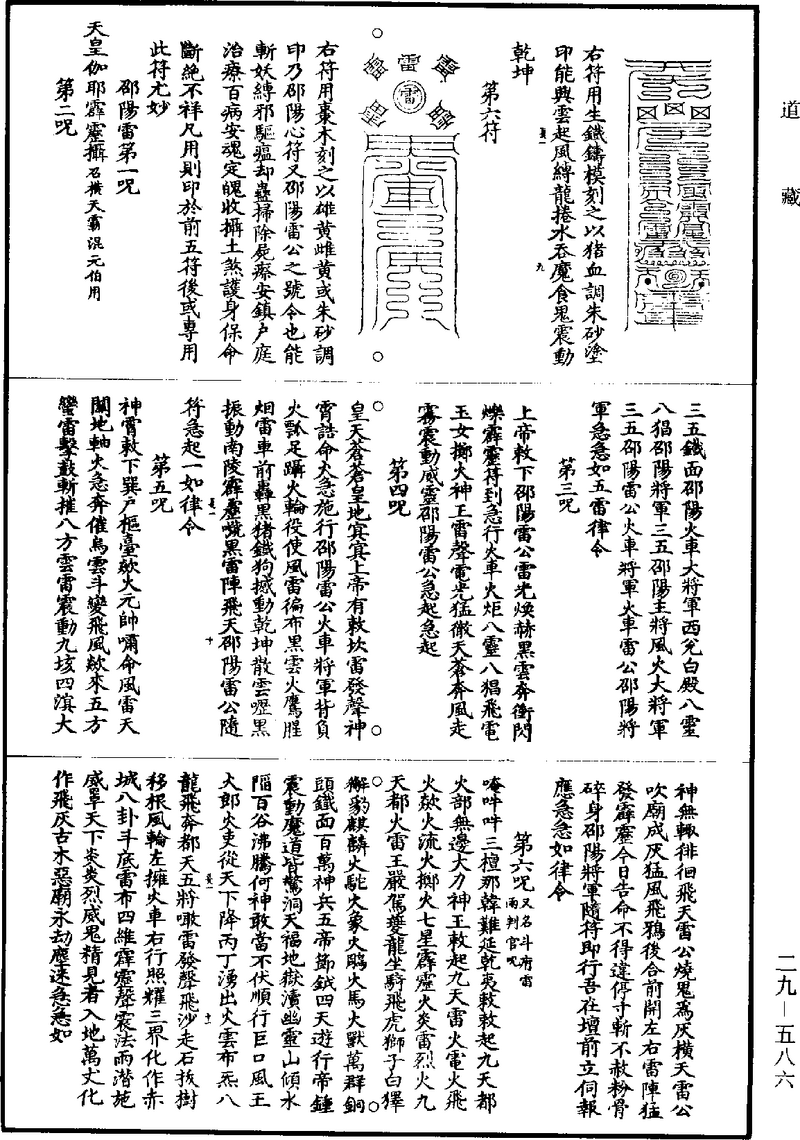 道藏
右符用生鐵鑄模刻之以猪血調朱砂塗
印能興雲起風縛龍捲水吞魔食鬼震動
乾坤
第六符
右符用棗木刻之以雄黃雌黃或朱砂調
印乃邵陽心符又邵陽雷公之號令也能
斬妖縛邪驅瘟却蠱掃除屍瘵安鎮戶庭
治療百病安魂定魄收攝土煞護身保命
斷絕不祥凡用則印於前五符後或專用
此符尤妙
邵陽雷第一呪
天皇伽耶霹靂攝召橫天霸混元伯用
第二呪
三五鐵面邵陽火車大將軍西兊白殿八靈
八猖邵陽將軍三五邵陽主將風火大將軍
三五邵陽雷公火車將軍火車雷公邵陽將
軍急急如五雷律令
第三呪
上帝敕下邵陽雷公雷光煥赫黑雲奔衝閃
爍霹靂符到急行火車火炬八靈八猖飛電
玉女擲火神王雷聲電光猛徹天蒼奔風走
霧震動威靈邵陽雷公急起急起
第四呪
皇天蒼蒼皇地冥冥上帝有敕坎雷發聲神
霄誥命火急施行邵陽雷公火車將軍背負
火瓢足躡火輪役使風雷徧布黑雲火鷹腥
烟雷車前轟黑猪鐵狗撼動乾坤散雲瀝黑
振動南陵霹靂號黑雷陣飛天邵陽雷公隨
符急起一如律令
第五呪
神霄敕下巽戶樞臺歘火元帥嘯命風雷天
關地軸火急奔催烏雲斗變飛風歘來五方
蠻雷擊鼓斬摧八方雲雷震動九垓四溟大
神無輒徘徊飛天雷公燒鬼爲灰橫天雷公
吹廟成灰猛風飛鴉後合前開左右雷陣猛
發霹靂今日告命不得違停寸斬不赦粉骨
碎身邵陽將軍隨符即行吾在壇前立伺報
應急急如律令
第六呪又名斗府雷雨判官呪
唵吽吽三檀那韓難延乾夷敕敕起九天都
火部無邊大力神王敕起九天雷火電火飛
火歘火流火擲火七星霹靂火炎雷烈火九
天都火雷王嚴駕夔龍坐騎飛虎獅子白澤
獬豹麒麟火駝火象火鵰火馬火獸萬群銅
頭鐵面百萬神兵五帝節鉞四天遊行帝鍾
震動魔道皆驚洞天福地嶽瀆幽靈山傾水
陷百谷沸騰何神敢當不伏順行巨口風王
火郎火吏從天下降丙丁湧出火雲布炁八
龍飛奔都天五將噉雷發聲飛沙走石拔樹
移根風輪左擁火車右行照耀三界化作赤
城八卦斗底雷布四維霹靂聲震法雨潛施
威罩天下炎炎烈威鬼精見者入地萬丈化
作飛灰古木惡廟永劫塵迷急急如
二九—五八六